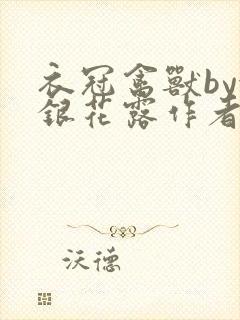 衣冠禽獸by
銀花露作者
沃德